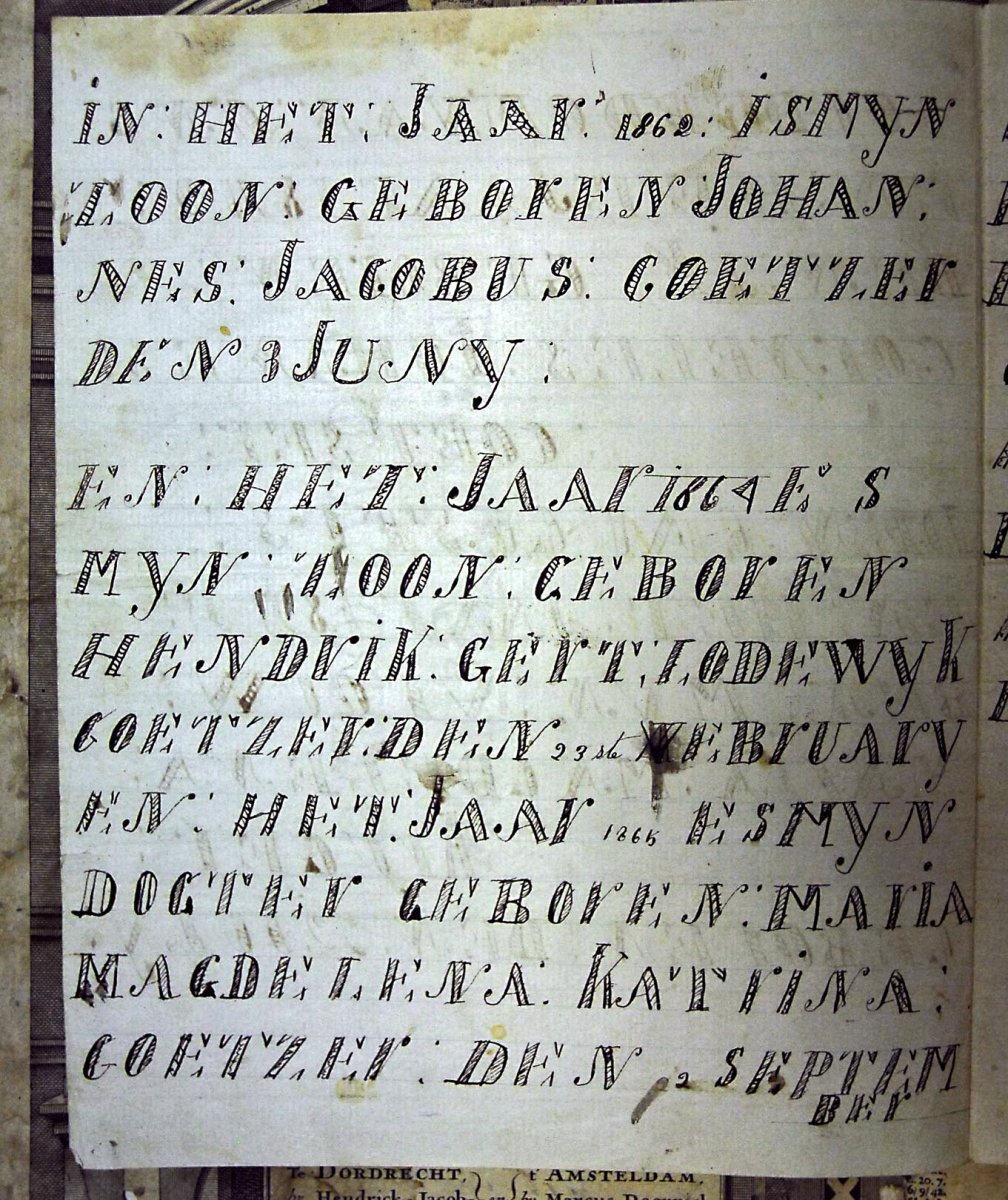 iN: HET: JAAr: 1862: iSMYN
ZOON: GEBOrEN JOHAN:
NES: JACOBUS: COETZEr
DEN 3 JUNY:
EN: HET: JAAr 1864 ES
MYN: ZOON: GEBOrEN
HENDriK: GErT: LODEWYK
COETZEr: DEN 23ste FEBrUArY
EN: HET: JAAr 1865 ESMYN
DOGTEr GEBOrEN: MAriA
MAGDELENA: KATriNA:
COETZEr: DEN 2 SEPTEM
BEr
Te DORDRECHT, t' AMSTELDAM,
by Hendrick Jacob en by Marcus